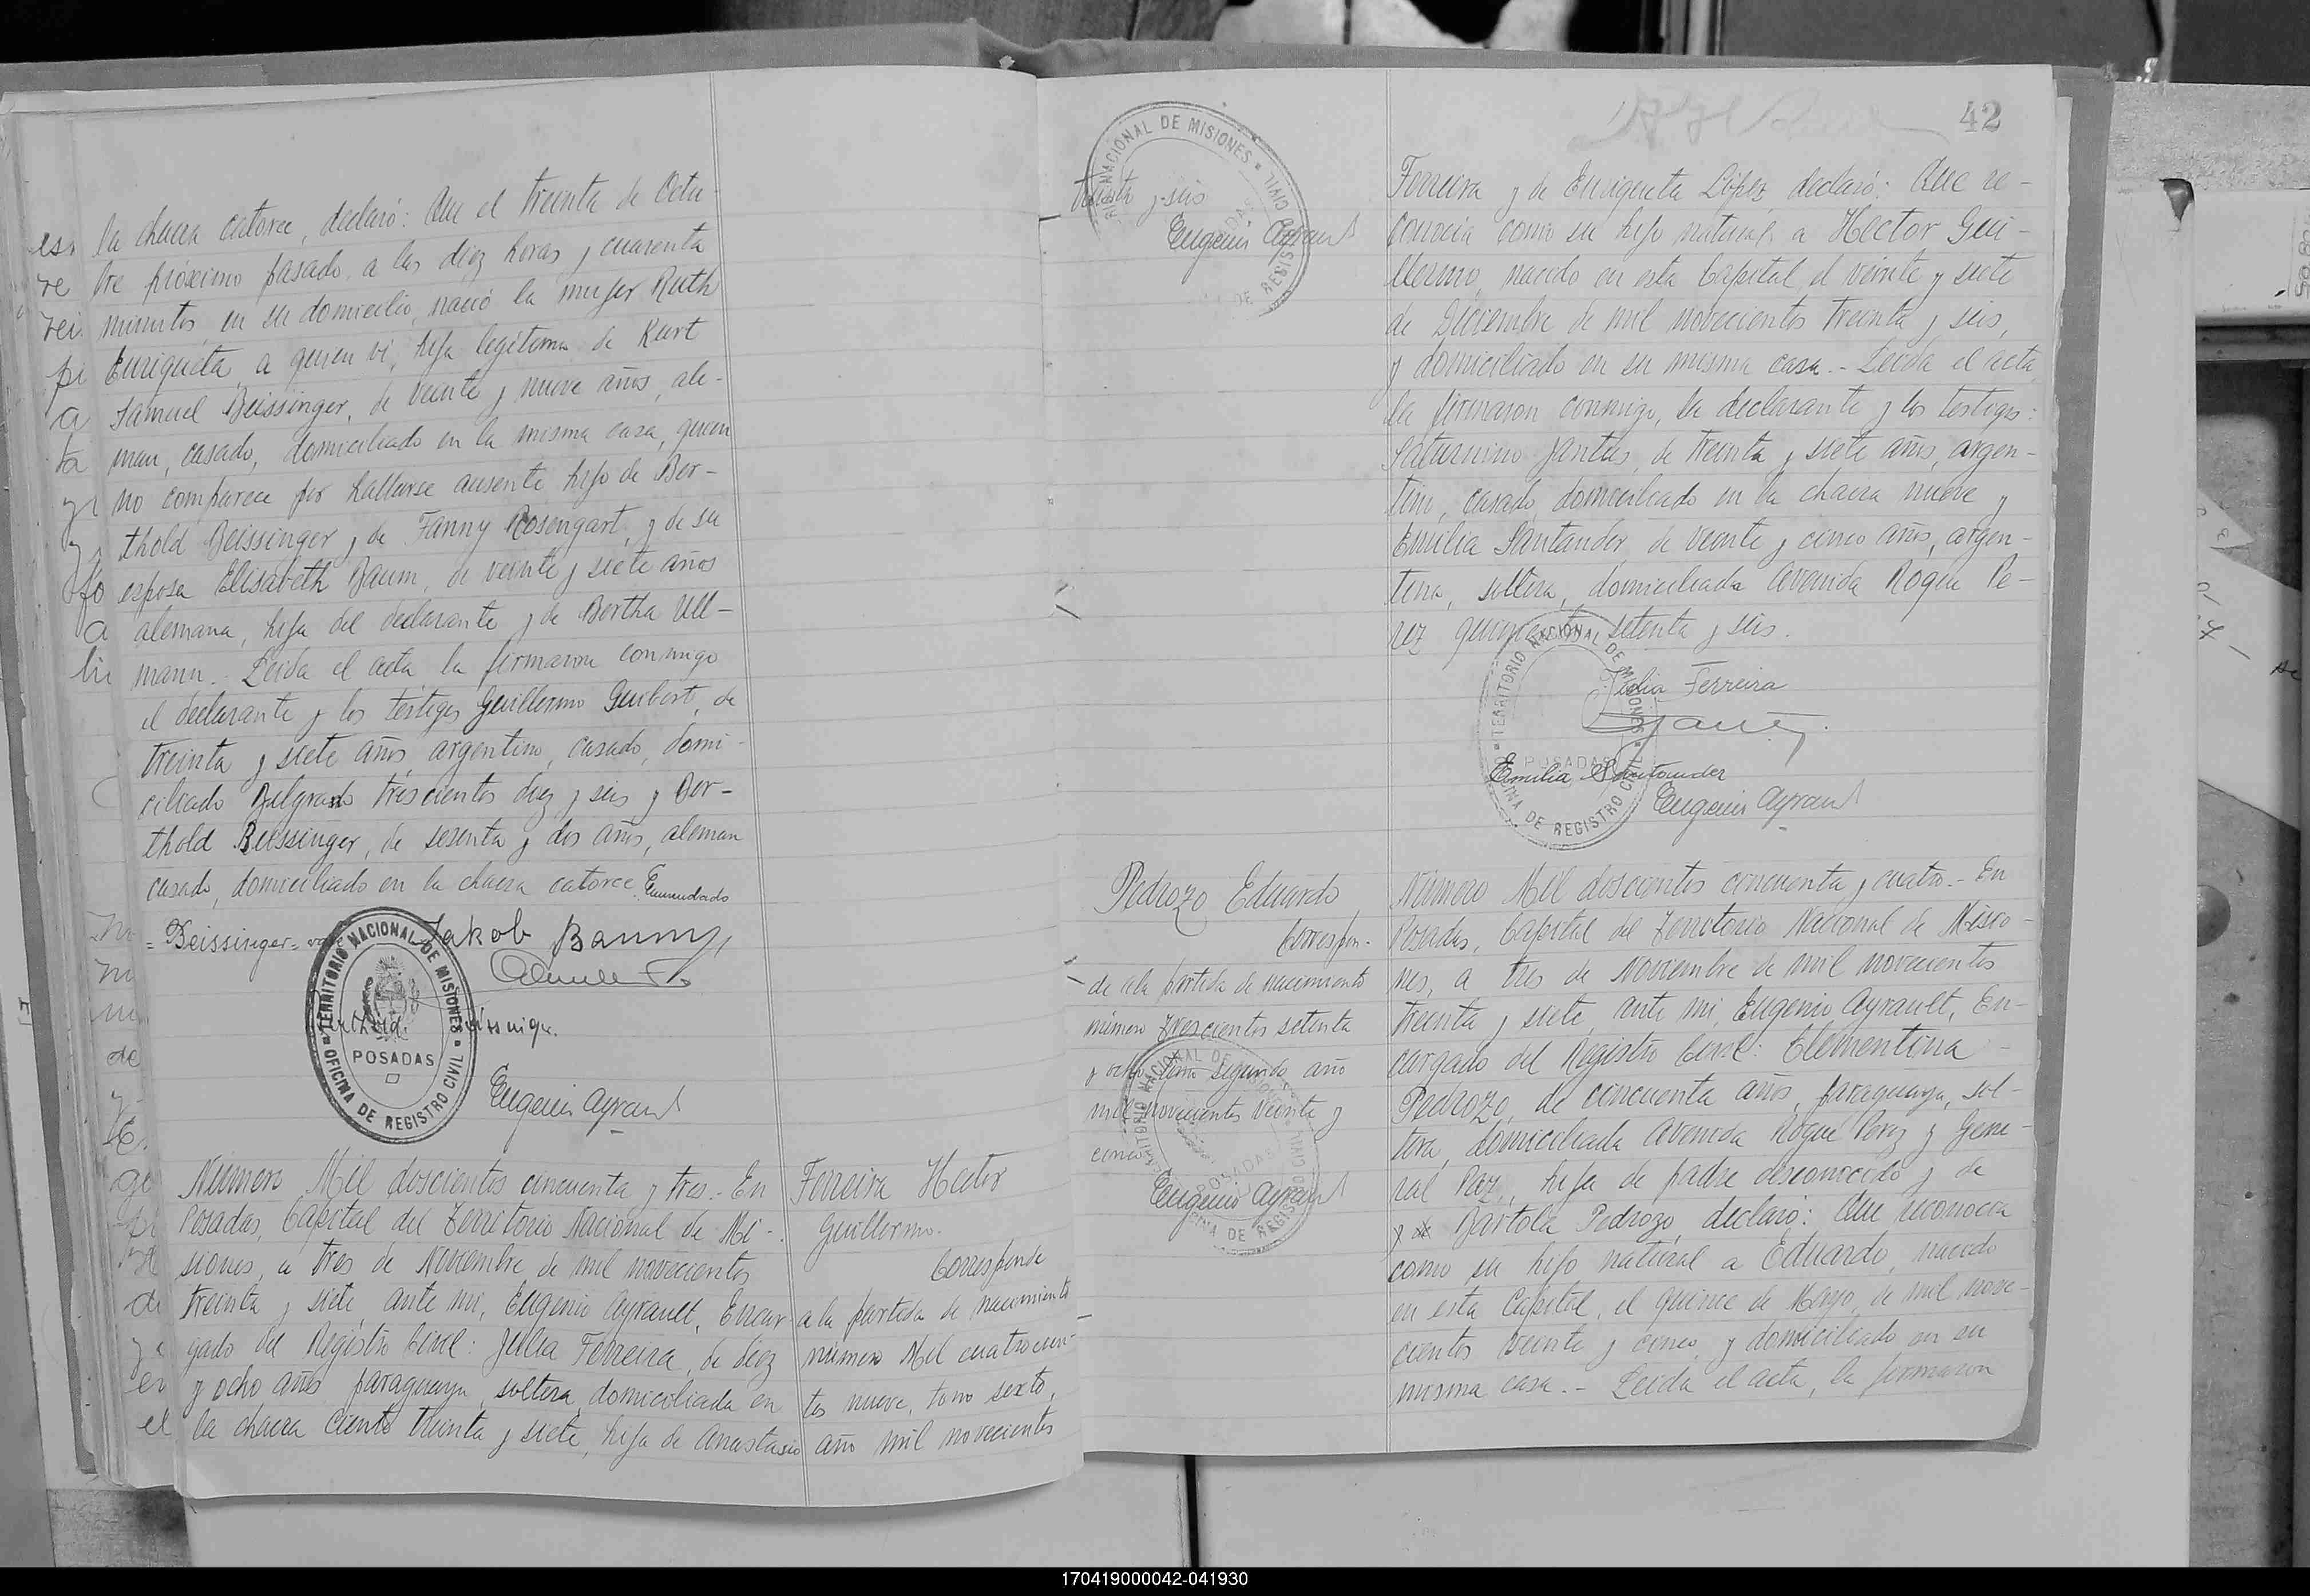 la chacra catorce, declaró: Que el treinta de Octu-
bre próximo pasado, a las diez horas y cuarenta
minutos, en su domicilio, nació la mujer Ruth
Enriqueta, a quien vi, hija legítima de Kurt
Samuel Beissinger, de veinte y nueve años, ale-
man, casado, domiciliado en la misma casa, quien
no comparece por hallarse ausente, hijo de Ber-
thold Beissinger y de Fanny Rosengart, y de su
esposa Elisabeth Baum, de veinte y siete años
alemana, hija del declarante y de Bertha Ull-
mann.- Leída el acta la firmaron conmigo
el declarante y los testigos Guillermo Guibert, de
treinta y siete años, argentino, casado, domi-
ciliado Belgrano trescientos diez y seis y Ber-
thold Beissinger, de sesenta y dos años, aleman
casado, domiciliado en la chacra catorce. Enmendado
= Beissinger = vale
Jakob Baum
TERRITORIO NACIONAL DE MISIONES
POSADAS
OFICINA DE REGISTRO CIVIL
Eugenio Ayrault
Número Mil doscientos cincuenta y tres.- En
Posadas, Capital del Territorio Nacional de Mi-
siones, a tres de Noviembre de mil novecientos
treinta y siete, ante mi, Eugenio Ayrault, Encar-
gado del Registro Civil: Julia Ferreira, de diez
y ocho años, paraguaya, soltera, domiciliada en
la chacra ciento treinta y siete, hija de Anastasio
Ferreira Hector
Guillermo.
Corresponde
a la partida de nacimiento
número Mil cuatrocien-
tos nueve, tomo sexto,
año mil novecientos
treinta y seis
Eugenio Ayrault
NACIONAL DE MISIONES
42
Ferreira y de Enriqueta López, declaró: Que re-
conocía como su hijo natural a Hector Gui-
llermo, nacido en esta Capital, el veinte y siete
de Diciembre de mil novecientos treinta y seis,
y domiciliado en su misma casa.- Leída el acta
la firmaron conmigo, la declarante y los testigos:
Saturnino Jantus, de treinta y siete años, argen-
tino, casado, domiciliado en la chacra nueve y
Emilia Santander, de veinte y cinco años, argen-
tina, soltera, domiciliada Avenida Roque Pe-
rez quinientos setenta y seis.
Julia Ferreira
Emilia Santander
Eugenio Ayrault
TERRITORIO NACIONAL DE MISIONES
POSADAS
OFICINA DE REGISTRO CIVIL
Pedrozo Eduardo
Correspon-
de a la partida de nacimiento
número trescientos setenta
y ocho tomo segundo, año
mil novecientos veinte y
cinco
Eugenio Ayrault
Número Mil doscientos cincuenta y cuatro.- En
Posadas, Capital del Territorio Nacional de Misio-
nes, a tres de Noviembre de mil novecientos
treinta y siete, ante mi, Eugenio Ayrault, En-
cargado del Registro Civil: Clementina
Pedrozo, de cincuenta años, paraguaya, sol-
tera, domiciliada Avenida Roque Perez y Gene-
ral Paz, hija de padre desconocido y de
Bartola Pedrozo, declaró: Que reconocia
como su hijo natural a Eduardo, nacido
en esta Capital, el quince de Mayo de mil nove-
cientos veinte y cinco, y domiciliado en su
misma casa.- Leída el acta, la firmaron
170419000042-041930